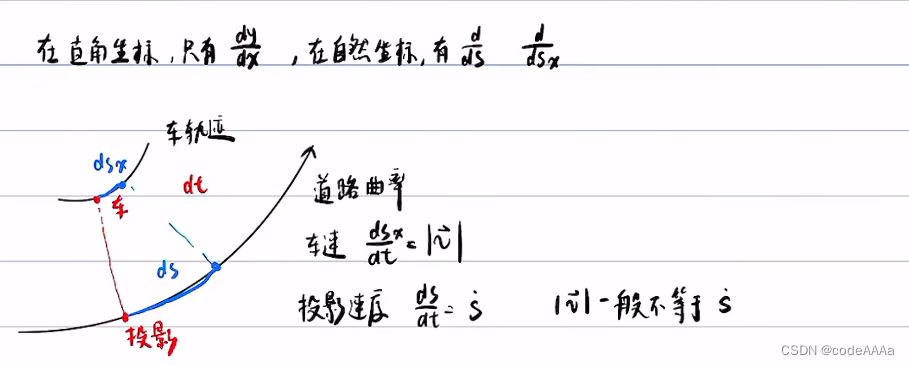 在直角坐标,只有 dy/dx ,在自然坐标,有 d/ds d/dsx
车轨迹
dsx
dt
车
道路曲率
车速 dsx/dt = |v⃗|
ds
投影速度 ds/dt = ṡ |v⃗|一般不等于 ṡ
投影
CSDN @codeAAAa